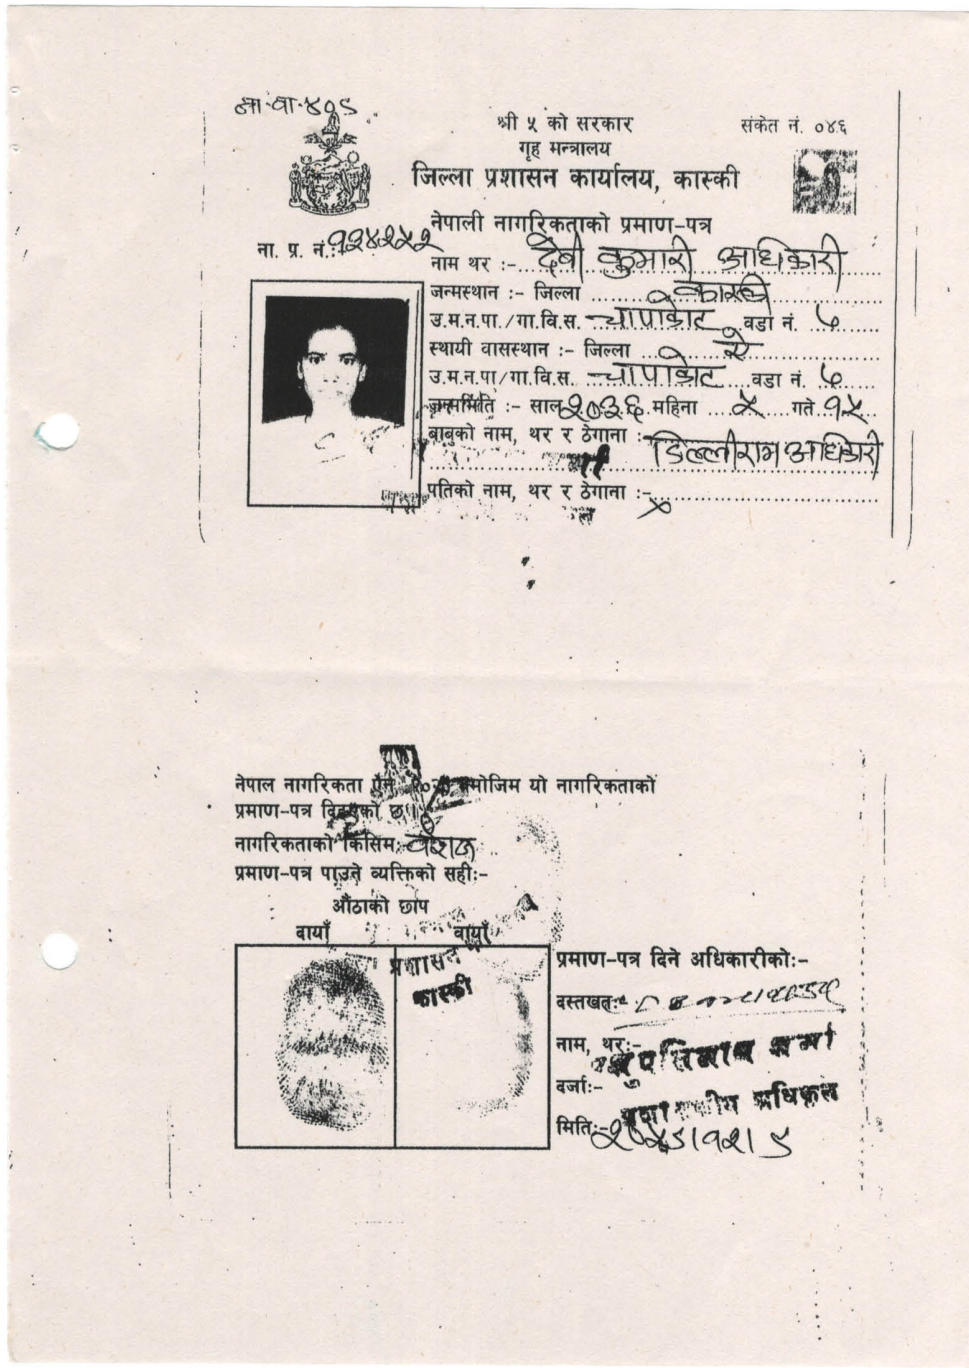 श्री ५ को सरकार
संकेत नं. ०४६
गृह मन्त्रालय
जिल्ला प्रशासन कार्यालय, कास्की
नेपाली नागरिकताको प्रमाण-पत्र
ना. प्र. नं.: १२४२५२
नाम थर :- देवी कुमारी अधिकारी
जन्मस्थान :- जिल्ला कास्की
उ.म.न.पा./गा.वि.स. चापाकोट वडा नं. ७
स्थायी वासस्थान :- जिल्ला ऐ
उ.म.न.पा/गा.वि.स. चापाकोट वडा नं. ७
जन्ममिति :- साल २०३६ महिना ५ गते १५
बाबुको नाम, थर र ठेगाना :- डिल्लीराम अधिकारी
पतिको नाम, थर र ठेगाना :- ×
नेपाल नागरिकता ऐन बमोजिम यो नागरिकताको
प्रमाण-पत्र दिइएको छ ।
नागरिकताको किसिम:- वंशज
प्रमाण-पत्र पाउने व्यक्तिको सही:-
औंठाको छाप
दायाँ बायाँ
प्रशासन
कास्की
प्रमाण-पत्र दिने अधिकारीको:-
दस्तखत:-
नाम, थर:- शर्मा
दर्जा:- अधिकृत
मिति:-